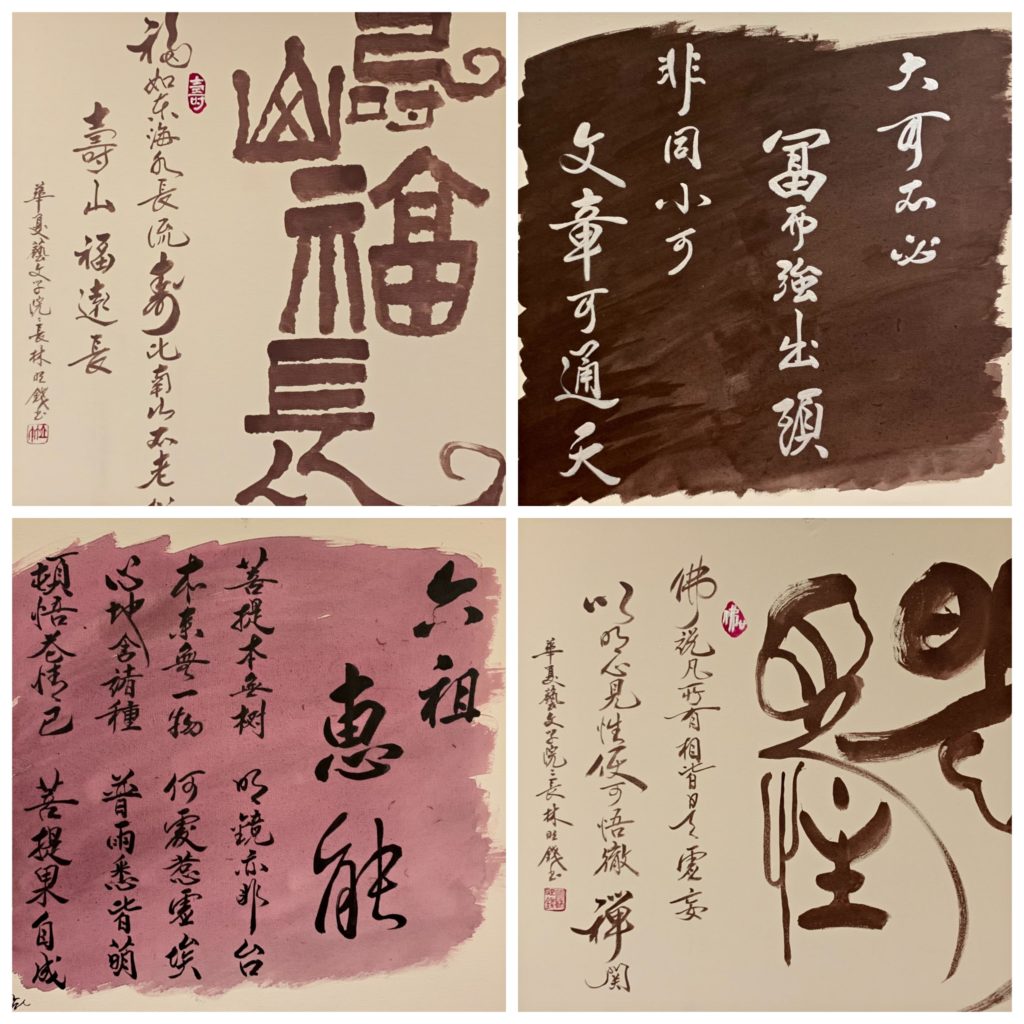 壽山福長
福如东海水長流寿比南山不老
壽山福遠長
華夏藝文学院〻長林旺錢书
大可不必
冨而強出頭
非同小可
文章可通天
六祖
惠能
菩提本無树 明鏡亦非台
本来無一物 何處惹塵埃
心地含諸種 普雨悉皆萌
頓悟花情已 菩提果自成
見性
佛説凡所有相皆是虚妄
以明心見性便可悟徹禪関
華夏藝文学院〻長林旺錢书